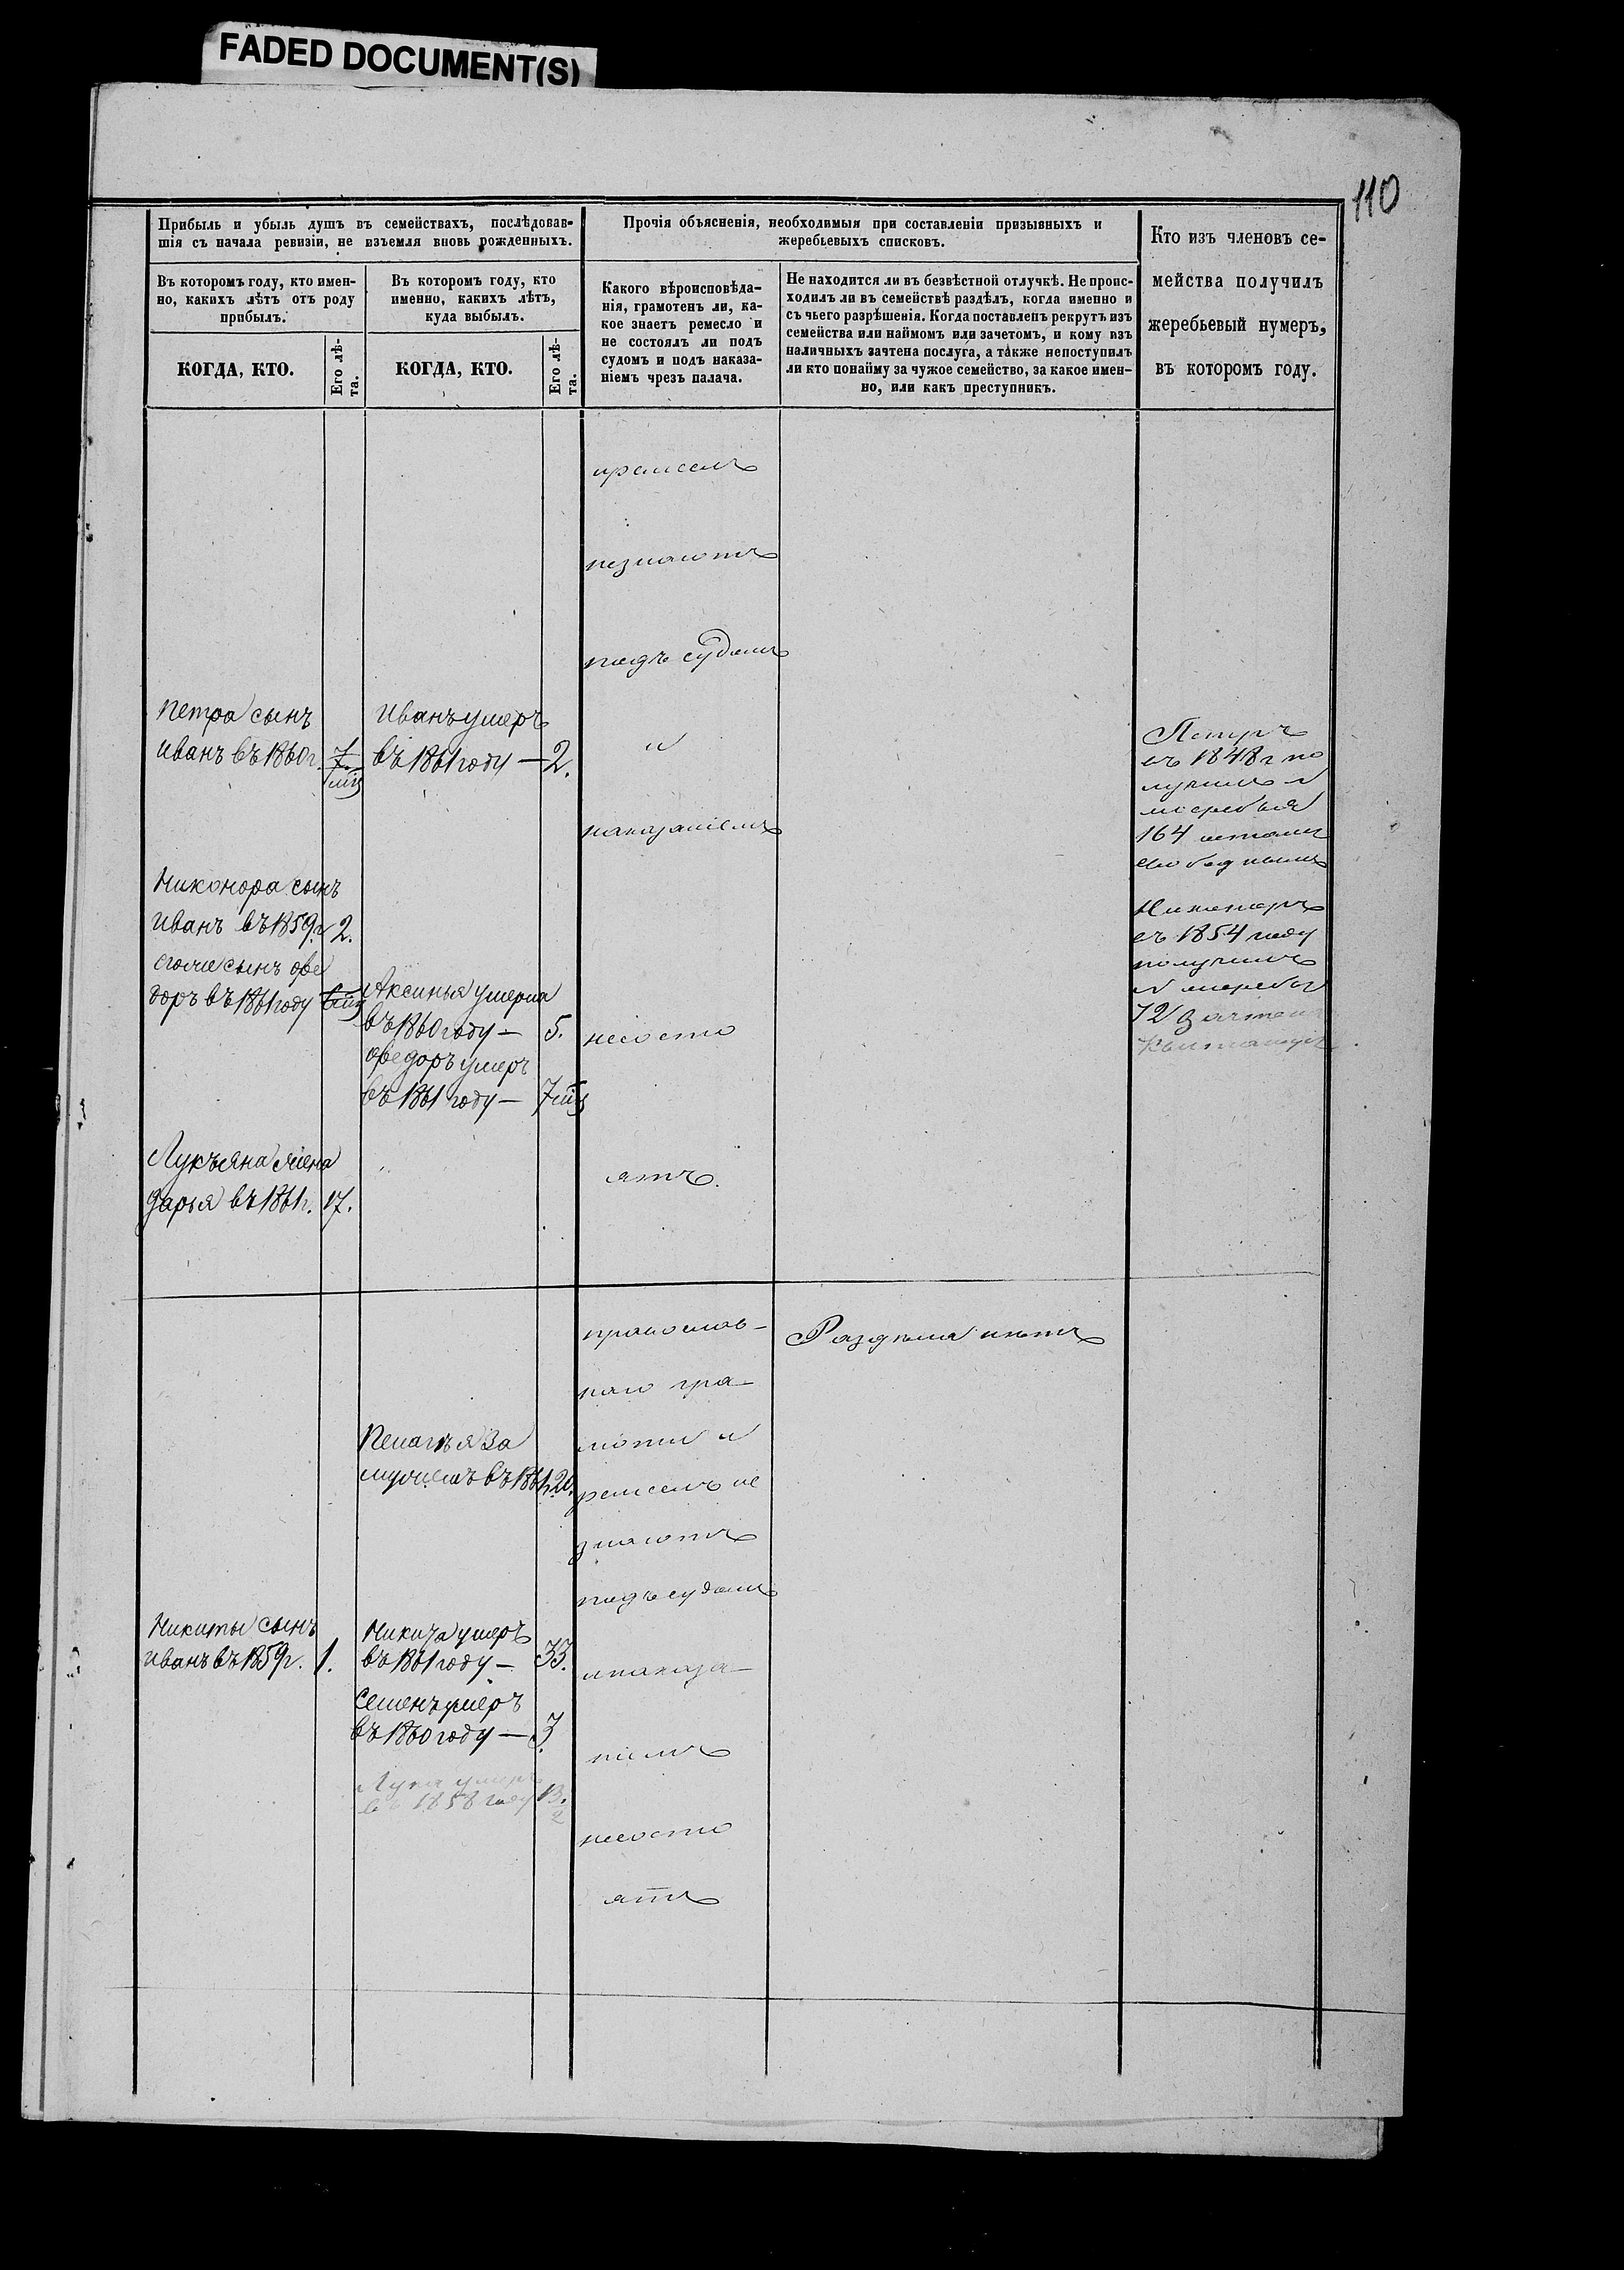 FADED DOCUMENT(S)
110
Прибыль и убыль душъ въ семействахъ, послѣдовав-
шія съ начала ревизіи, не изъемля вновь рожденныхъ.
Прочія объясненія, необходимыя при составленіи призывныхъ и
жеребьевыхъ списковъ.
Кто изъ членовъ се-
мейства получилъ
жеребьевый нумеръ,
въ которомъ году.
Въ которомъ году, кто имен-
но, какихъ лѣтъ отъ роду
прибылъ.
Въ которомъ году, кто
именно, какихъ лѣтъ,
куда выбылъ.
Какого вѣроисповѣда-
нія, грамотенъ ли, ка-
кое знаетъ ремесло и
не состоялъ ли подъ
судомъ и подъ наказа-
ніемъ чрезъ палача.
Не находится ли въ безвѣстной отлучкѣ. Не проис-
ходилъ ли въ семействѣ раздѣлъ, когда именно и
съ чьего разрѣшенія. Когда поставленъ рекрутъ изъ
семейства или наймомъ или зачетомъ, и кому изъ
наличныхъ зачтена послуга, а также непоступилъ
ли кто понайму за чужое семейство, за какое имен-
но, или какъ преступникъ.
КОГДА, КТО.
Его лѣ-
та.
КОГДА, КТО.
Его лѣ-
та.
незнаютъ
подъ судомъ
и
наказаніемъ
несосто
ятъ.
Петра сынъ
Иванъ въ 1860 г. 7
Иванъ умеръ
въ 1861 году — 2.
Петръ
въ 1848 г по
лучилъ
жеребья
164
свободнымъ
Никонора сынъ
Иванъ въ 1859 г 2.
сынъ Фе
доръ въ 1861 году
Аксинья умерла
въ 1860 году — 5.
Федоръ умеръ
въ 1861 году — 7 мц
Никоноръ
въ 1854 году
получилъ
жеребья
72
Лукьяна жена
Дарья въ 1861 г. 17.
православ-
наго гра-
моты и
ремеслъ не
знаютъ
подъ судомъ
и наказа-
ніемъ
несосто
ятъ
Раздѣла нѣтъ
Пелагѣя за
мужемъ въ 1861 г. 20.
Никиты сынъ
Иванъ въ 1859 г. 1.
Никита умеръ
въ 1861 году — 33.
Семенъ умеръ
въ 1860 году — 3.
Лука умеръ
въ 1858 году 13.